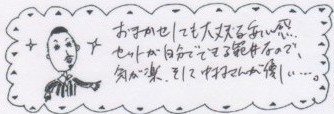 おまかせしても大丈夫な安心感。
セットが自分でできる範囲なので、
気が楽。そして中村さんが優しい…。